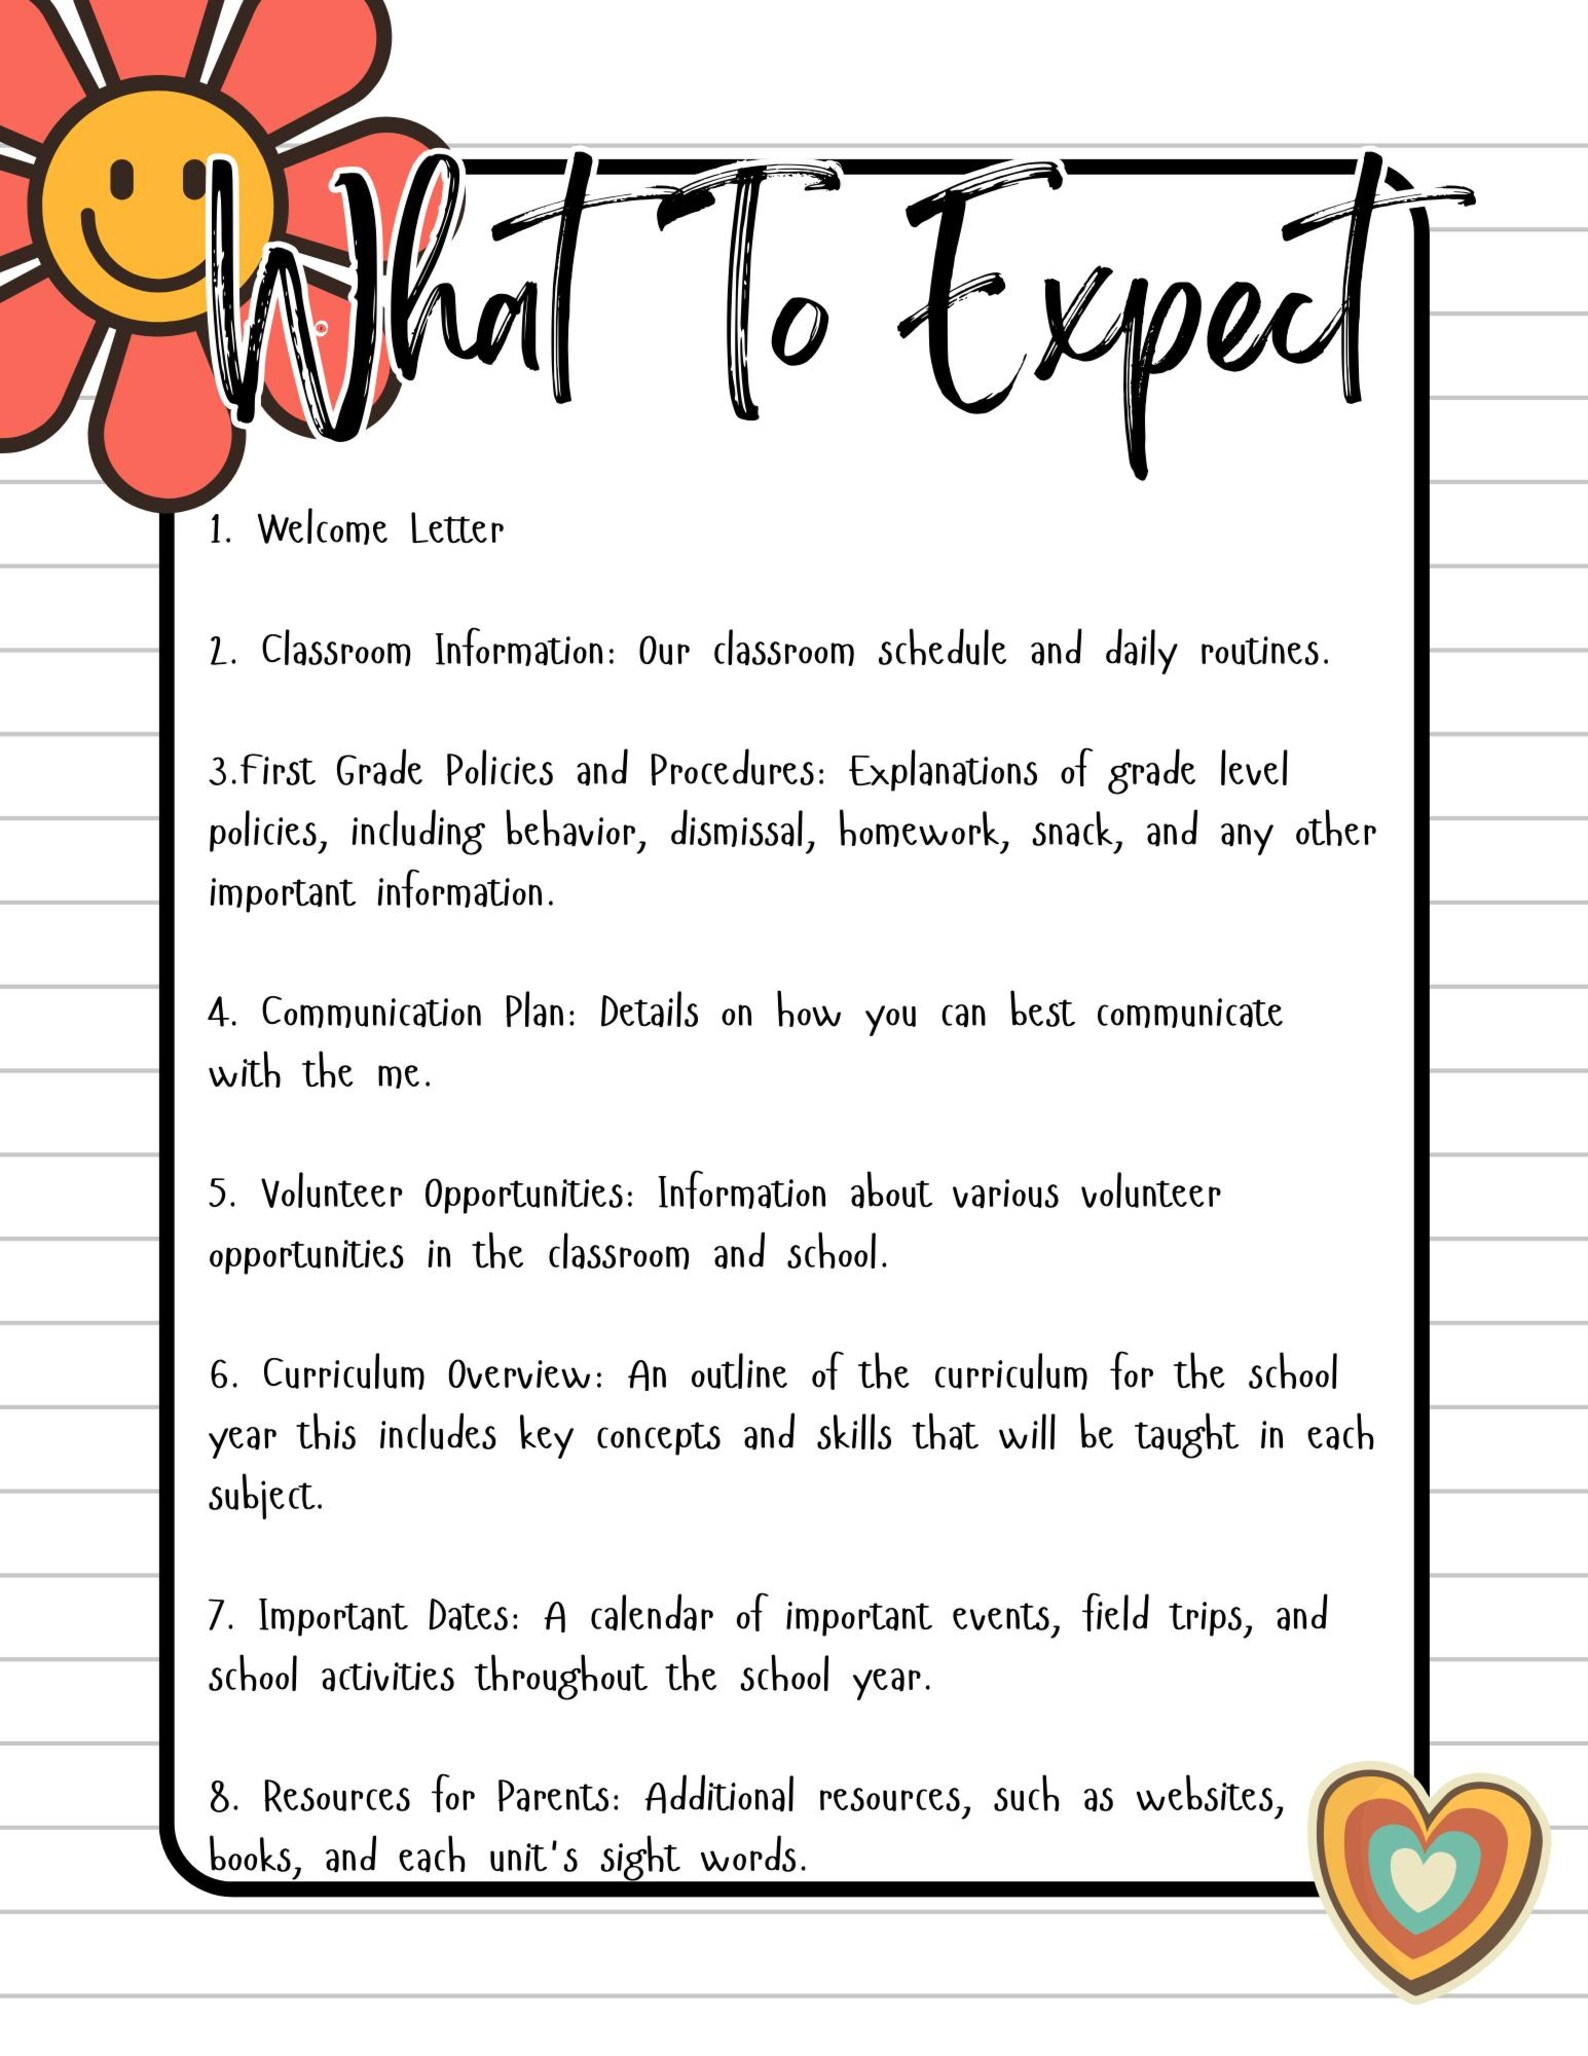 What To Expect
1. Welcome Letter
2. Classroom Information: Our classroom schedule and daily routines.
3.First Grade Policies and Procedures: Explanations of grade level
policies, including behavior, dismissal, homework, snack, and any other
important information.
4. Communication Plan: Details on how you can best communicate
with the me.
5. Volunteer Opportunities: Information about various volunteer
opportunities in the classroom and school.
6. Curriculum Overview: An outline of the curriculum for the school
year this includes key concepts and skills that will be taught in each
subject.
7. Important Dates: A calendar of important events, field trips, and
school activities throughout the school year.
8. Resources for Parents: Additional resources, such as websites,
books, and each unit's sight words.